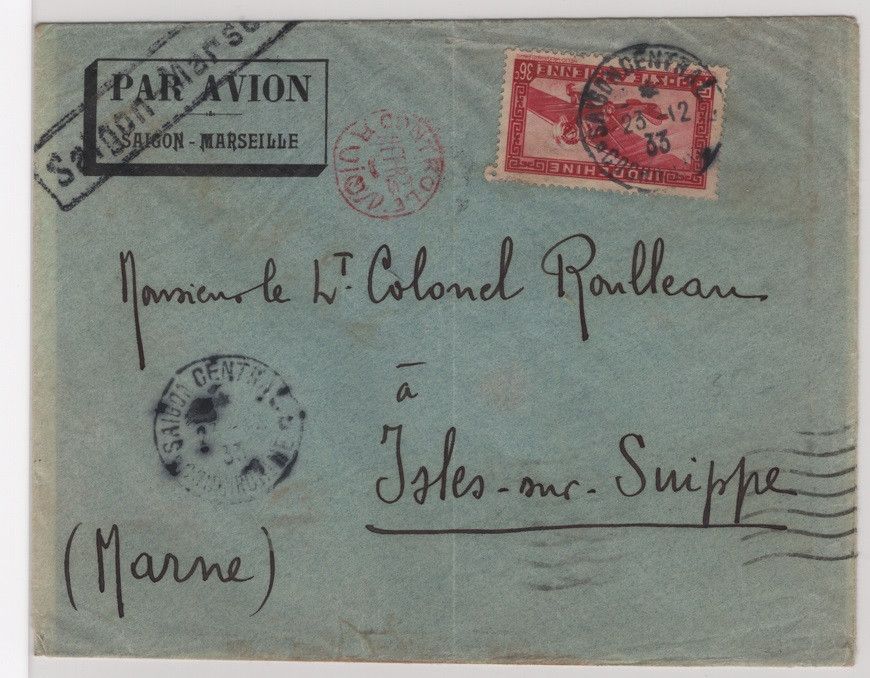 Saigon Marse
PAR AVION
SAIGON - MARSEILLE
CONTROLE
36c
POSTE AERIENNE
INDOCHINE
SAIGON CENTRAL
23 -12
33
Monsieur le Lt. Colonel Roulleau
à
Isles-sur-Suippe
(Marne)
SAIGON CENTRAL
33